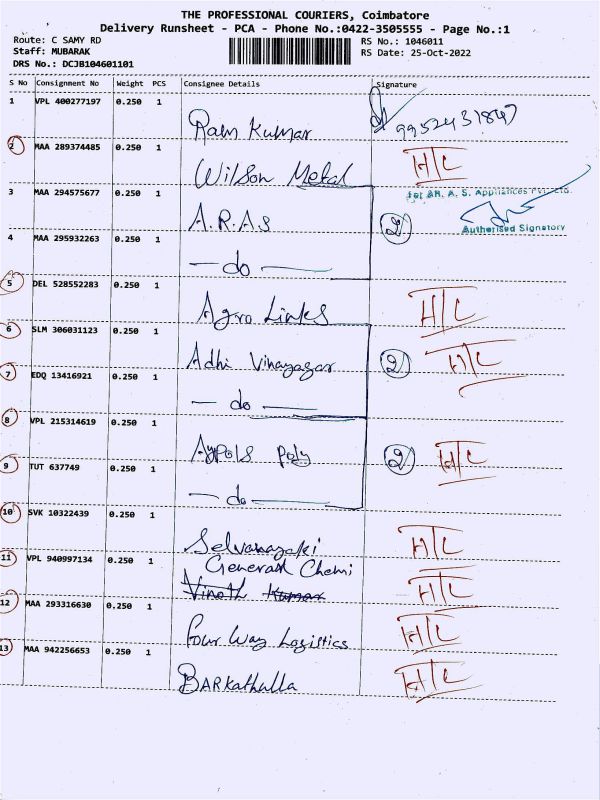 THE PROFESSIONAL COURIERS, Coimbatore
Delivery Runsheet - PCA - Phone No.:0422-3505555 - Page No.:1
Route: C SAMY RD RS No.: 1046011
Staff: MUBARAK RS Date: 25-Oct-2022
DRS No.: DCJB104601101
S No Consignment No Weight PCS Consignee Details Signature
1 VPL 400277197 0.250 1
Ram Kumar 9952431847
2 MAA 289374485 0.250 1
Wilson Metal H/C
3 MAA 294575677 0.250 1 for AR. A. S. Appliances Pvt. Ltd.
A.R.AS 2
Authorised Signatory
4 MAA 295932263 0.250 1
- do -
5 DEL 528552283 0.250 1
Agro Links H/C
6 SLM 306031123 0.250 1
Adhi Vinayagar 2 H/C
7 EDQ 13416921 0.250 1
- do -
8 VPL 215314619 0.250 1
Aypols poly 2 H/C
9 TUT 637749 0.250 1
- do -
10 SVK 10322439 0.250 1
Selvanayaki H/C
11 VPL 940997134 0.250 1
General Chemi
Vinoth Kumar H/C
12 MAA 293316630 0.250 1
Four Way Logistics H/C
13 MAA 942256653 0.250 1
BARKathulla H/C